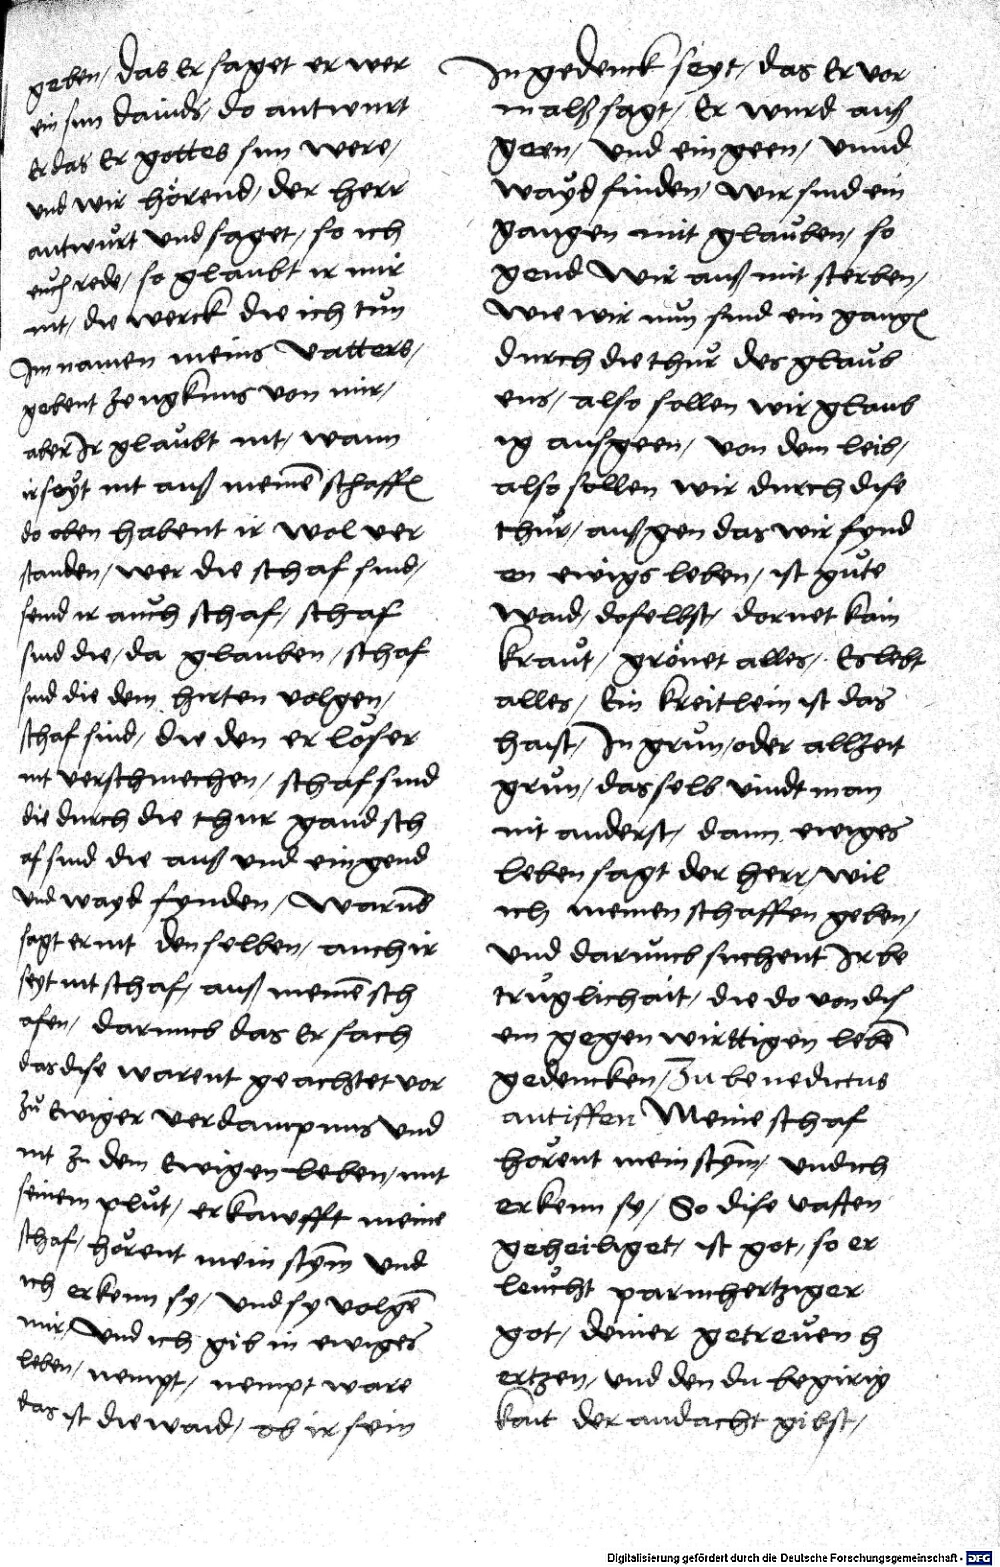 geben/ das Er saget er wer
ein sun dauids/ do antwurt
Er das Er gottes sun were/
vnd wir hörend/ der herr
antwůrt vnd saget/ so ich
euch rede/ so glaubt ir mir
nit/ die werck die ich tůn
Im namen meins vatters/
gebent zeugknus von mir/
aber Ir glaůbt nit/ wann
ir seyt nit auß meinē schaffen
do oben habent ir wol ver
standen/ wer die schaf sind/
seind ir auch schaf/ schaf
sind die/ da glauben/ schaf
sind die dem hirten volgen/
schaf sind/ die den erlöser
nit verschmechen/ schaf sind
die durch die thur gand sch
af sind die auß vnd ein gend
vnd wayd fynden/ Warūb
sagt er nit den selben/ auch ir
seyt nit schaf/ auß meinē sch
afen/ darumb das Er sach
das dise warent geachtet vor
zů Ewiger verdampnus vnd
nit zu dem Ewigen leben/ mit
seinem plůt/ erkawfft meine
schaf/ hörent mein stȳm vnd
ich erkenn sy/ vnd sy volgē
mir/ Vnd ich gib in ewiges
leben/ nempt/ nempt ware
das ist die waid/ ob ir sein
In gedenck seyt/ das Er vor
mals sagt/ Er wurd auß
geen/ vnd ein geen/ vnnd
wayd finden/ Wir sind ein
gangen mit glaůben/ so
gend Wir auß mit sterben/
Wie wir nun sind ein gangen
durch die thůr des glaub
ens/ also sollen wir glaub
ig ausgeen/ von dem leib/
also sollen wir durch dise
thůr/ auß gen das wir fynd
en ewigs leben/ ist gůte
waid/ doselbst/ dorret kain
kraut/ grönet alles/ Es lebt
alles/ Ein kreitlein ist das
haist/ In grun/ oder allzeit
grun/ dasselb vindt man
nit anderst/ dann ewiges
leben sagt der herr/ wil
ich meinen schaffen geben/
vnd darumb suchent Ir be
trůglichait/ die do von dis
em gegenwirttigen lebē
gedencken/ Zu benedictus
antiffen Meine schaf
hörent mein stȳm/ vnd ich
erkenn sy/ So dise vasten
geheiliget/ ist got/ so er
leucht parmhertziger
got/ deiner getreůen h
ertzen/ vnd den du begirig
kait der andacht gibst/
Digitalisierung gefördert durch die Deutsche Forschungsgemeinschaft - DFG